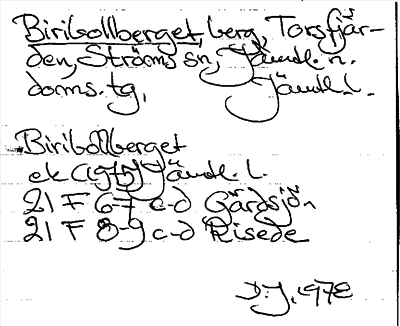 Biribollberget, berg, Torsfjär-
den, Ströms sn, Jämtl. n.
doms. tg, Jämtl. l.
Biribollberget
ek (1975) Jämtl. l.
21 F 6-7 c-d Gårdsjön
21 F 8-9 c-d Risede
D.J. 1978